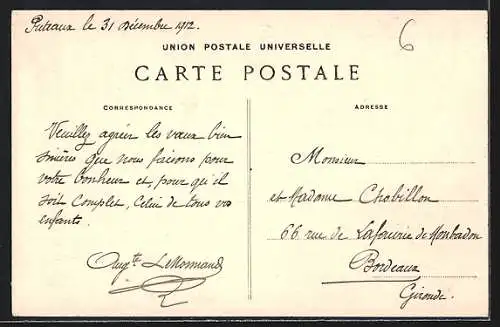 Puteaux le 31 Décembre 1912.
6
UNION POSTALE UNIVERSELLE
CARTE POSTALE
CORRESPONDANCE
Veuillez agréer les vœux bien
sincères que nous faisons pour
votre bonheur et, pour qu'il
soit Complet, Celui de tous vos
enfants.
Augte LeNormand
ADRESSE
Monsieur
et Madame Chobillon
66 rue de Lafaurie de Monbadon
Bordeaux
Gironde.